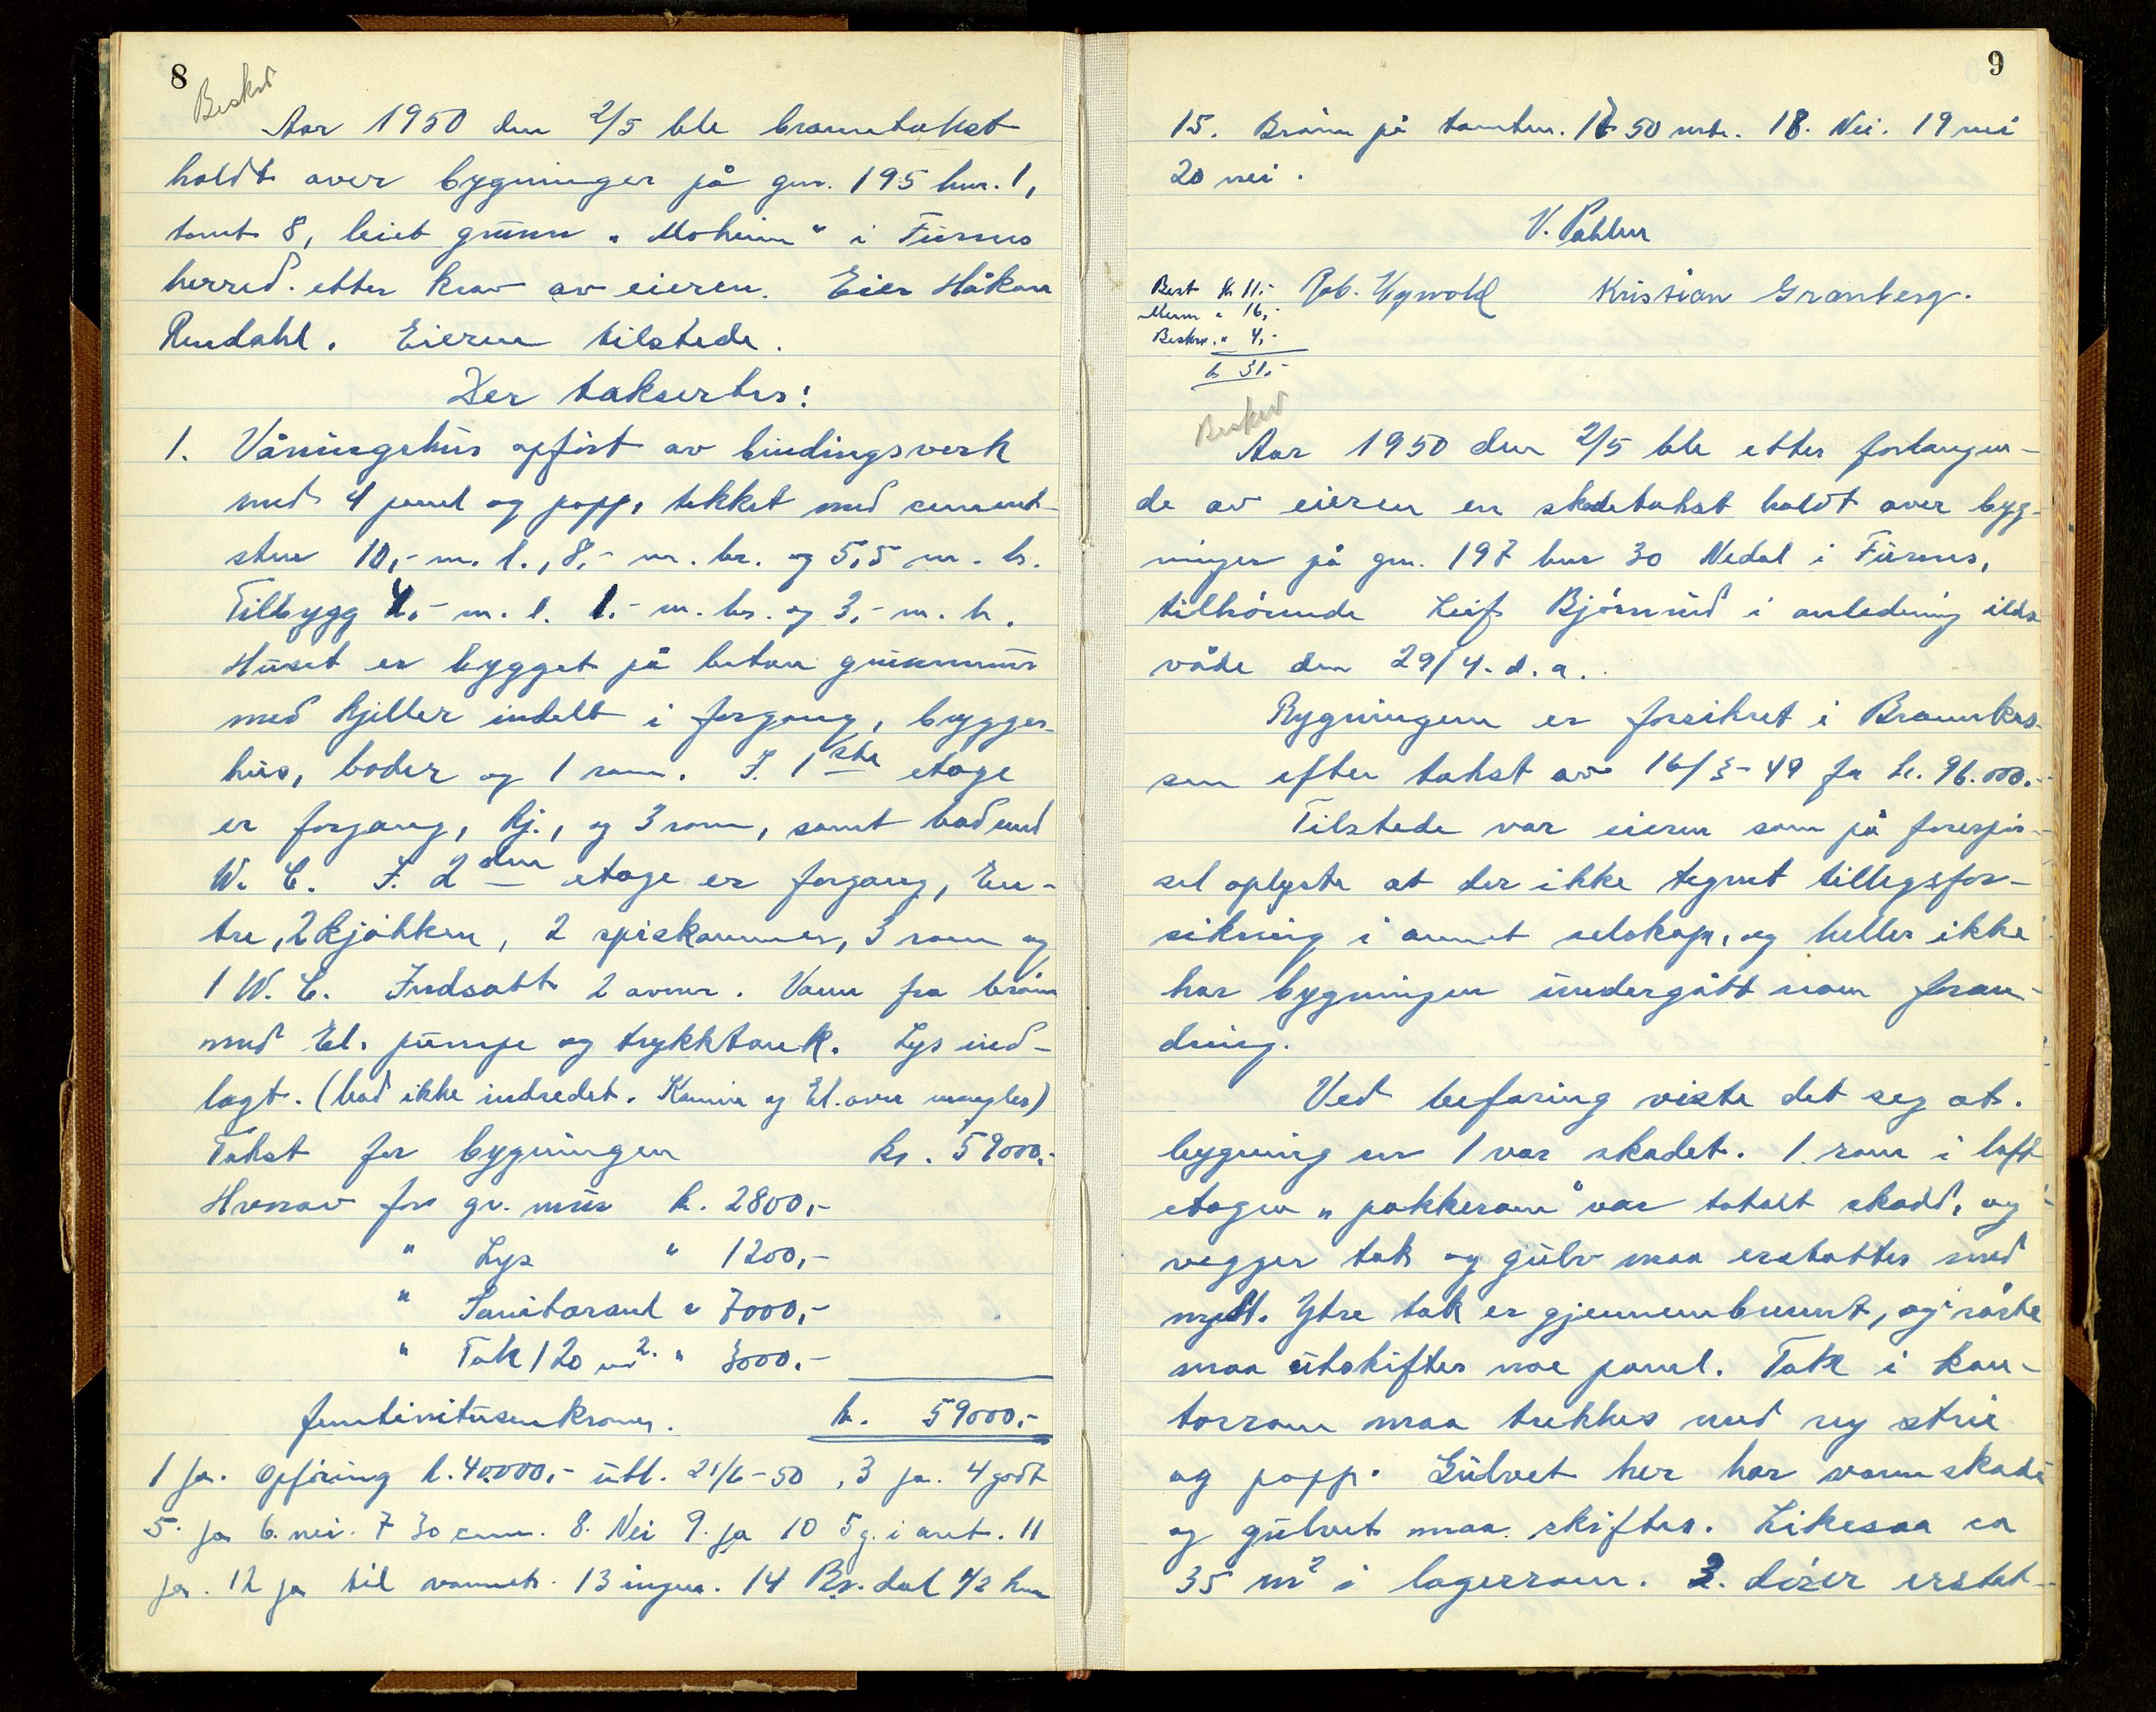 8
Beskrd
Aar 1950 den 2/5 ble branntakst
holdt over bygninger på gnr. 195 bnr. 1,
tomt 8, leiet grunn „Moheim“ i Furnes
herred. etter krav av eieren. Eier Håkon
Rendahl. Eieren tilstede.
Der taksertes:
1. Våningshus opført av bindingsverk
med 4 panel og papp, tekket med cement-
stein 10,- m. l., 8,- m. br. og 5,5 m. h.
Tilbygg 4,- m. l. 1,- m. br. og 3,- m. h.
Huset er bygget på beton grunnmur
med kjeller indelt i forgang, brygger-
hus, boder og 1 rom. I 1ste etage
er forgang, kj., og 3 rom, samt bad med
W. C. I 2den etage er forgang, En-
tre, 2 kjøkken, 2 spiskammer, 3 rom og
1 W. C. Indsatt 2 ovner. Vann fra brønn
med El. pumpe og trykktank. Lys ind-
lagt. (bad ikke indredet. Kamin og El. ovn mangler)
Takst for bygningen kr. 59000,-
Hvorav for gr. mur kr. 2800,-
" Lys " 1200,-
" Sanitæranl " 7000,-
" Tak 120 m2. " 3000,-
femtinitusenkroner. kr. 59000,-
1 ja. Opføring k. 40.000,- utl. 21/6-50, 3 ja. 4 godt
5. ja 6. nei. 7 30 cmm. 8. Nei 9. ja 10 5 g. i aret. 11
ja. 12 ja til vannet. 13 ingen. 14 Br.dal 4/2 km
9
15. Brønn på tomten. 17 50 mtr. 18. Nei. 19 nei
20 nei.
V. Pahler
Best kr 11,- Kristian Granberg.
" 16,-
Beskr. " 4,-
kr 31,-
Beskrd
Aar 1950 den 2/5 ble etter forlangen-
de av eieren en skadetakst holdt over byg-
ninger på gnr. 197 bnr 30 Nedal i Furnes,
tilhørende Leif Bjørnrud i anledning ilds
våde den 29/4. d. a.
Bygningen er forsikret i Brannkas-
sen efter takst av 16/3-49 for kr. 96.000.-
Tilstede var eieren som på forespør-
sel oplyste at der ikke tegnet tillegsfor-
sikring i annet selskap, og heller ikke
har bygningen undergått noen foran-
dring.
Ved befaring viste det seg at.
bygning nr 1 var skadet. 1. rom i loft
etagen „pakkerom“ var totalt skadd, og
vegger tak og gulv maa erstattes med
nytt. Ytre tak er gjennembrennt, og i røste
maa utskiftes noe panel. Tak i kon-
torrom maa trekkes med ny strie
og papp. Gulvet her har vannskade
og gulvet maa skiftes. Likesaa ca
35 m2 i lagerrom. 2. dører erstat-